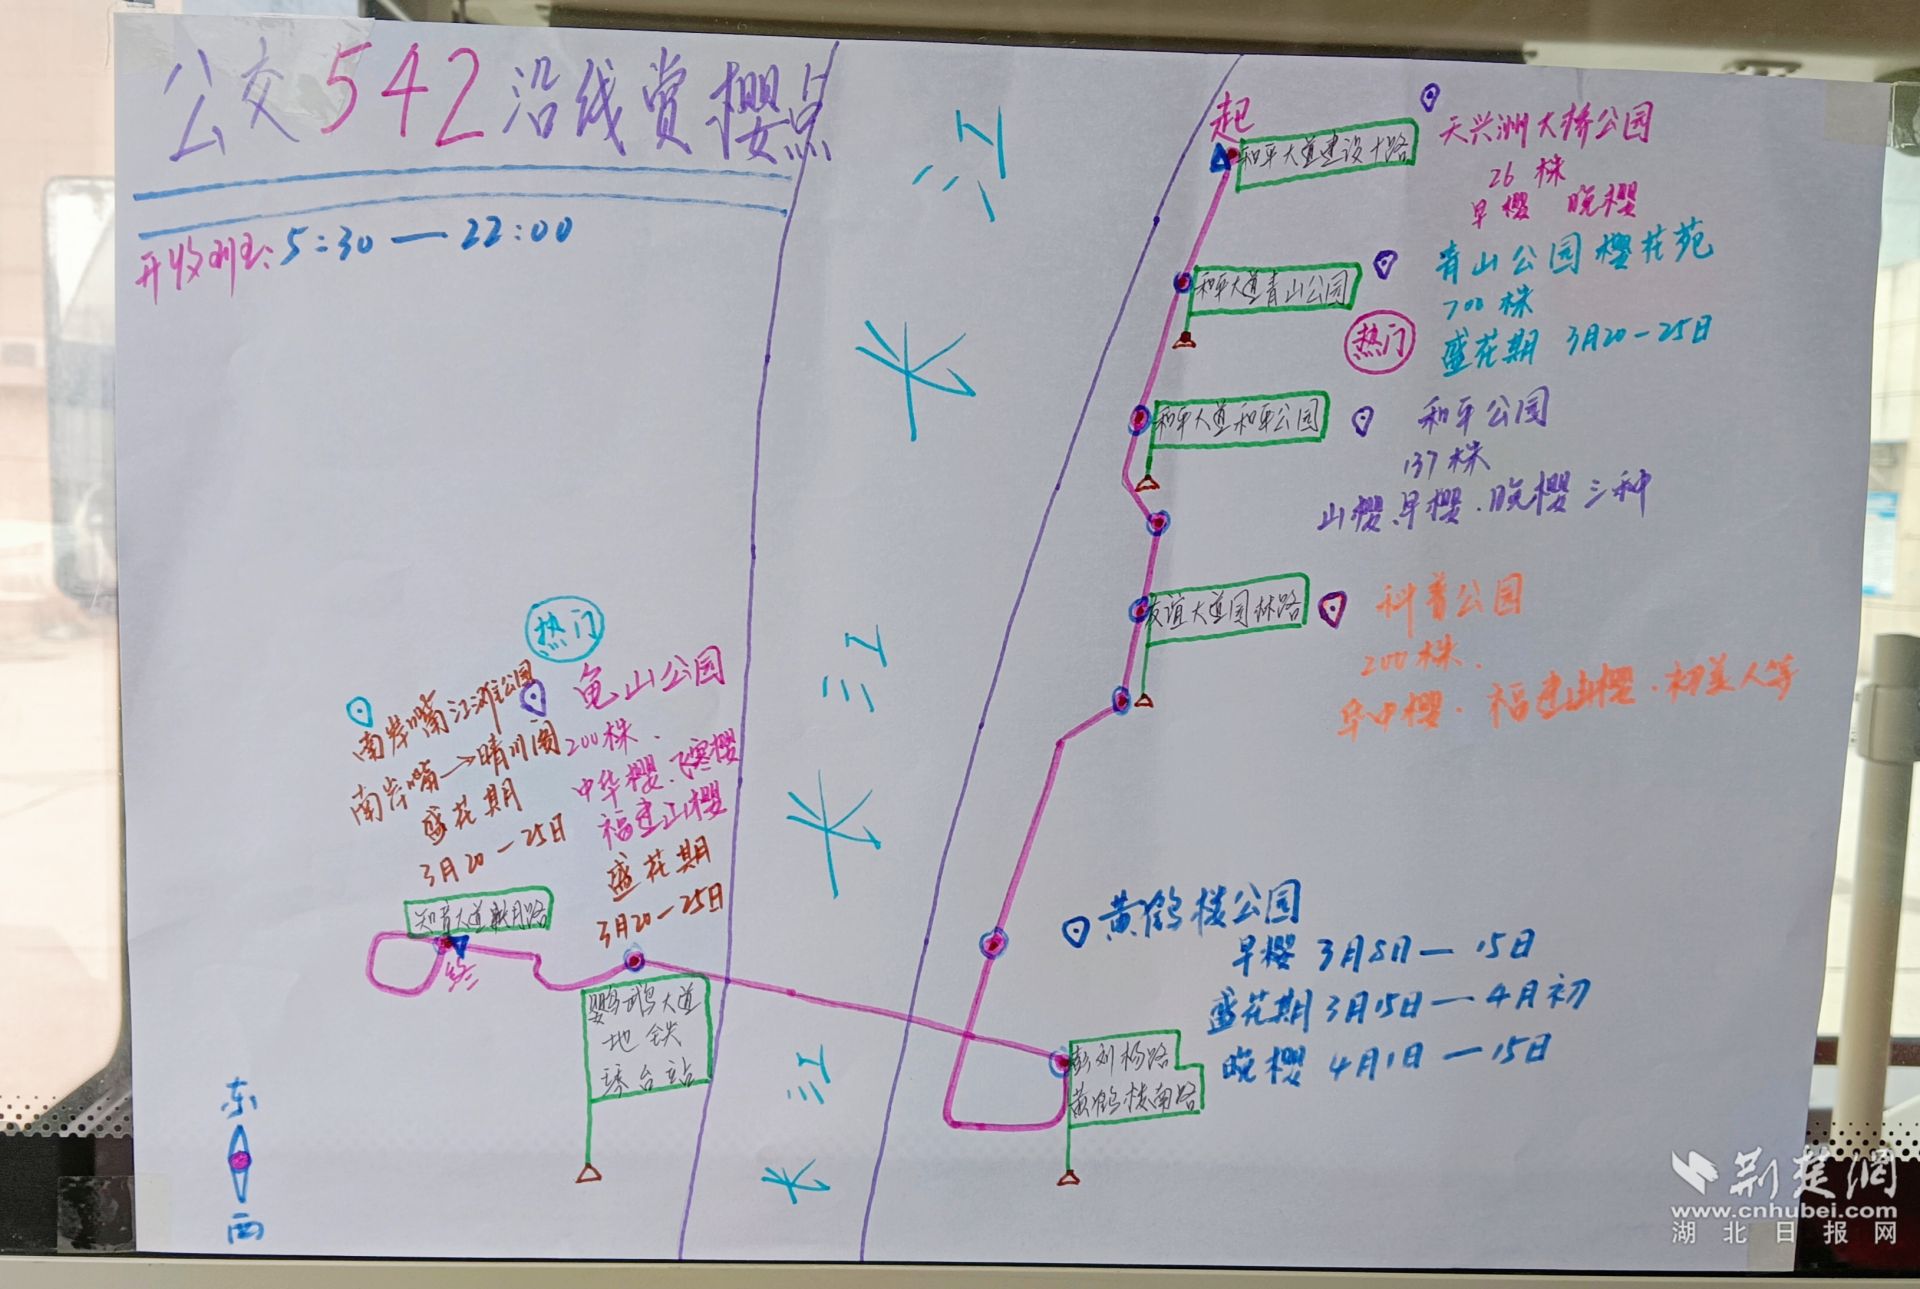 公交542沿线赏樱点
开收班: 5:30—22:00
长江
长江
长江
起
和平大道建设十路
天兴洲大桥公园
26株
早樱 晚樱
和平大道青山公园
青山公园樱花苑
700株
热门
盛花期 3月20-25日
和平大道和平公园
和平公园
137株
山樱、早樱、晚樱三种
友谊大道园林路
科普公园
200株.
早中樱. 福建山樱. 初美人等
黄鹤楼公园
早樱 3月8日—15日
盛花期 3月15日—4月初
晚樱 4月1日—15日
彭刘杨路
黄鹤楼南路
热门
龟山公园
200株.
中华樱.飞寒樱
福建山樱
盛花期
3月20-25日
南岸嘴江滩公园
南岸嘴→晴川阁
盛花期
3月20-25日
知音大道
终
鹦鹉大道
地铁
琴台站
东
西
荆楚网
www.cnhubei.com
湖北日报网